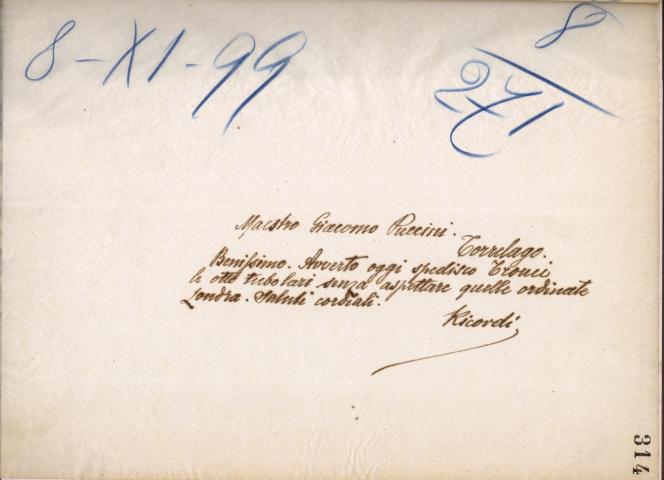 8-XI-99
8
271
Maestro Giacomo Puccini.
Torrelago.
Benissimo. Avverto oggi spedisco Tronci
le otto tubolari senza aspettare quelle ordinate
Londra. Saluti cordiali.
Ricordi
314